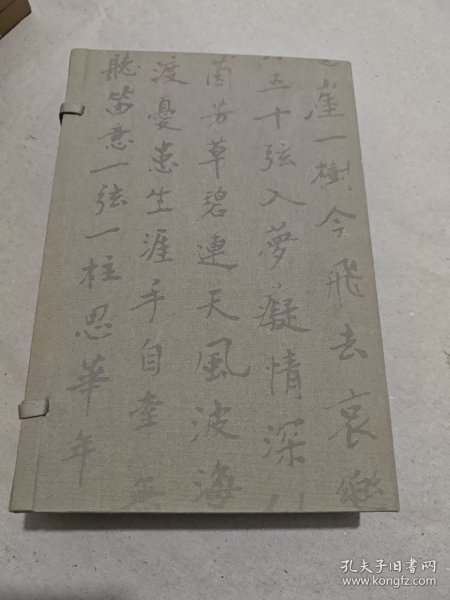 崖一樹今飛去哀樂
五十弦入夢癡情深
芳草碧連天風波海
渡憂患生涯手自牽無
聽笛意一弦一柱思華年
孔夫子旧书网
www.kongfz.com